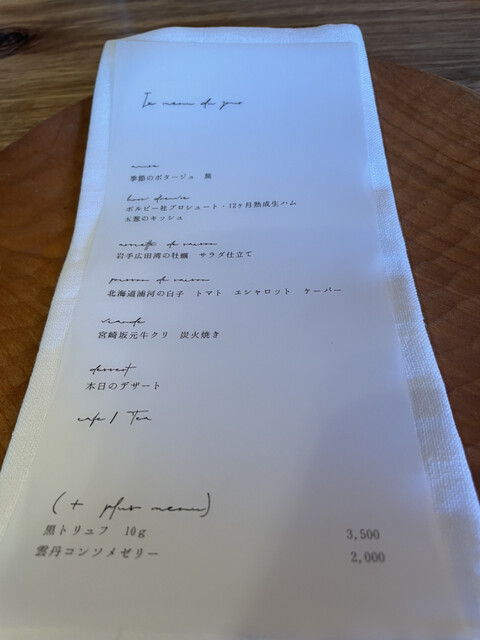 Le menu du jour
amuse
季節のポタージュ 蕪
hors d'œuvre
ボルピー社プロシュート・12ヶ月熟成生ハム
玉葱のキッシュ
assiette de saison
岩手広田湾の牡蠣 サラダ仕立て
poisson de saison
北海道浦河の白子 トマト エシャロット ケーパー
viande
宮崎坂元牛クリ 炭火焼き
dessert
本日のデザート
cafe / Tea
(+ plus menu)
黒トリュフ 10g 3,500
雲丹コンソメゼリー 2,000